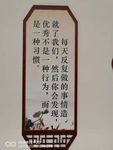 每天反复做的事情造
就了我们，然后你会发现，
优秀不是一种行为，而
是一种习惯。